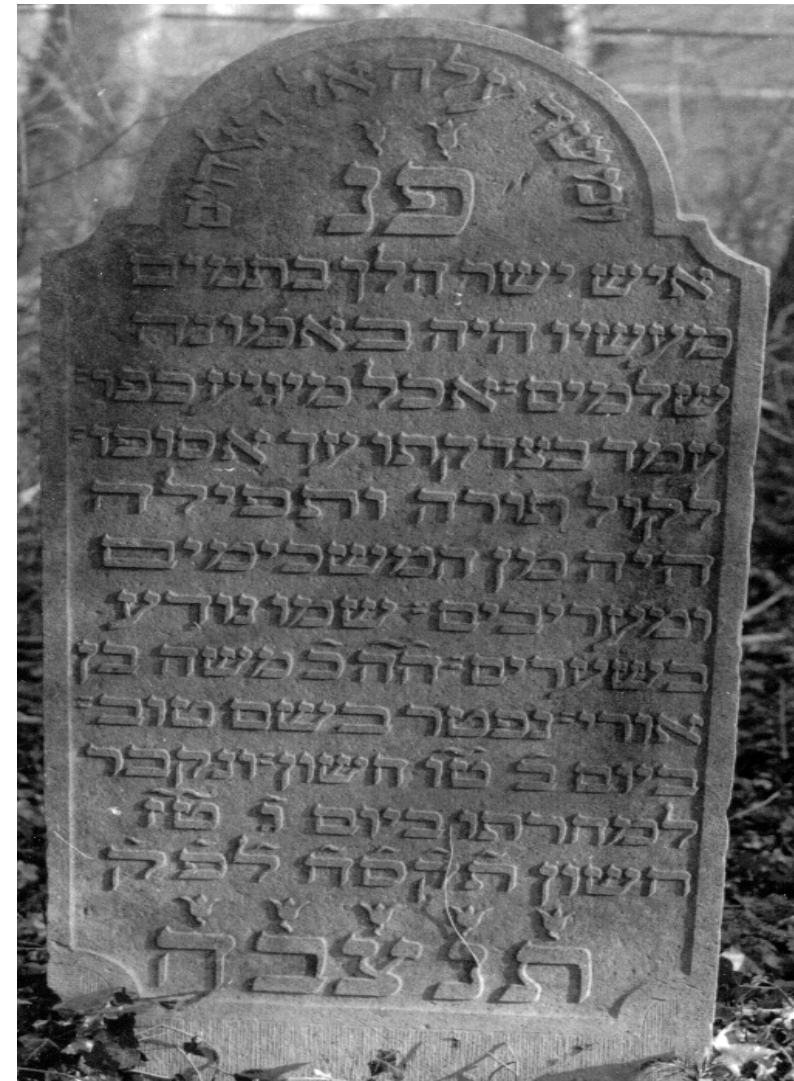 ומשה עלה אל האלהים
פנ
איש ישר הלך בתמים
מעשיו היה באמונה
שלמים אכל מיגיע כפי
עמד בצדקתו עד אסופו
לקול תורה ותפילה
היה מן המשכימים
ומעריבים שמו נודע
בשערים הה̇ כ̇ משה בן
אורי נפטר בשם טוב
ביום ב טו חשון ונקבר
למחרתו ביום ג טז
חשון תקסח לפק
תנצבה